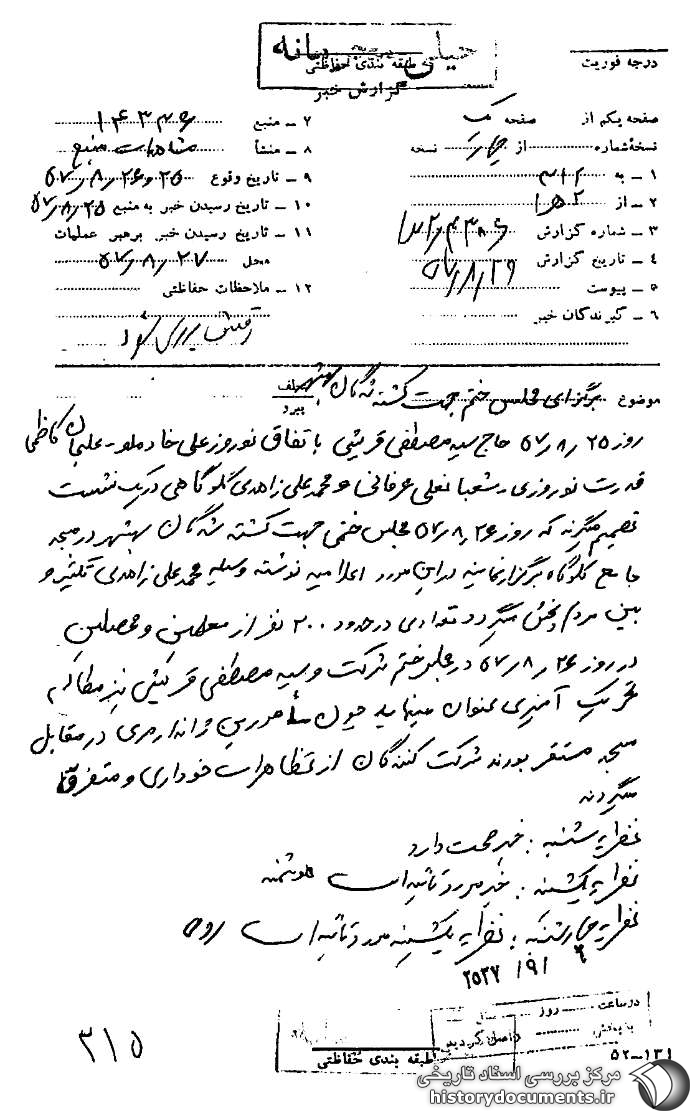 خیلی محرمانه
طبقه بندی حفاظتی
گزارش خبر
درجه فوریت
صفحه یکم از یک صفحه
نسخهٔ شماره از چهار نسخه
۱ ـ به ۳۱۲
۲ ـ از ۲ ه‍ ۱
۳ ـ شماره گزارش
۴ ـ تاریخ گزارش ۵۷٫۸٫۲۹
۵ ـ پیوست
۶ ـ گیرندگان خبر
۷ ـ منبع ۱۴۳۷۶
۸ ـ منشأ مشاهدات منبع
۹ ـ تاریخ وقوع ۲۵ و ۵۷٫۸٫۲۶
۱۰ ـ تاریخ رسیدن خبر به منبع ۵۷٫۸٫۲۵
۱۱ ـ تاریخ رسیدن خبر برهبر عملیات
محل ۵۷٫۸٫۲۷
۱۲ ـ ملاحظات حفاظتی
موضوع برگزاری مجلس ختم جهت کشته شدگان بهشهر
سلف
پیرو
روز ۵۷٫۸٫۲۵ حاج سید مصطفی قریشی باتفاق نوروزعلی خادملو ـ علیجان کاظمی
قدرت نوروزی رشعبانعلی عرفانی و محمدعلی زاهدی گلوگاهی در یک نشست
تصمیم میگیرند که روز ۵۷٫۸٫۲۶ مجلس ختمی جهت کشته شدگان بهشهر در مسجد
جامع گلوگاه برگزار نمایند در این مورد اعلامیه نوشته وسیله محمدعلی زاهدی تکثیر و
بین مردم پخش میگردد تعدادی در حدود ۲۰۰ نفر از معلمین و محصلین
در روز ۵۷٫۸٫۲۶ در مجلس ختم شرکت و سید مصطفی قریشی نیز مطالب
تحریک آمیزی عنوان مینماید چون مأمورین ژاندارمری در مقابل
مسجد مستقر بودند شرکت کنندگان از تظاهرات خودداری و متفرق
میگردند
نظریه شنبه : خبر صحت دارد
نظریه یکشنبه : خبر مورد تائید است هوشمند
نظریه چهارشنبه : نظریه یکشنبه مورد تائید است
۲۵۳۷ ٫۹٫ ۶
در ساعت روز
بایگانی
واصل گردید
طبقه بندی حفاظتی
۵۲ـ۱۳۱
۳۱۵
مرکز بررسی اسناد تاریخی
historydocuments.ir